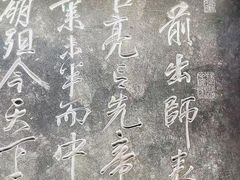 前出師表
亮言先帝
業未半而中
崩殂今天下